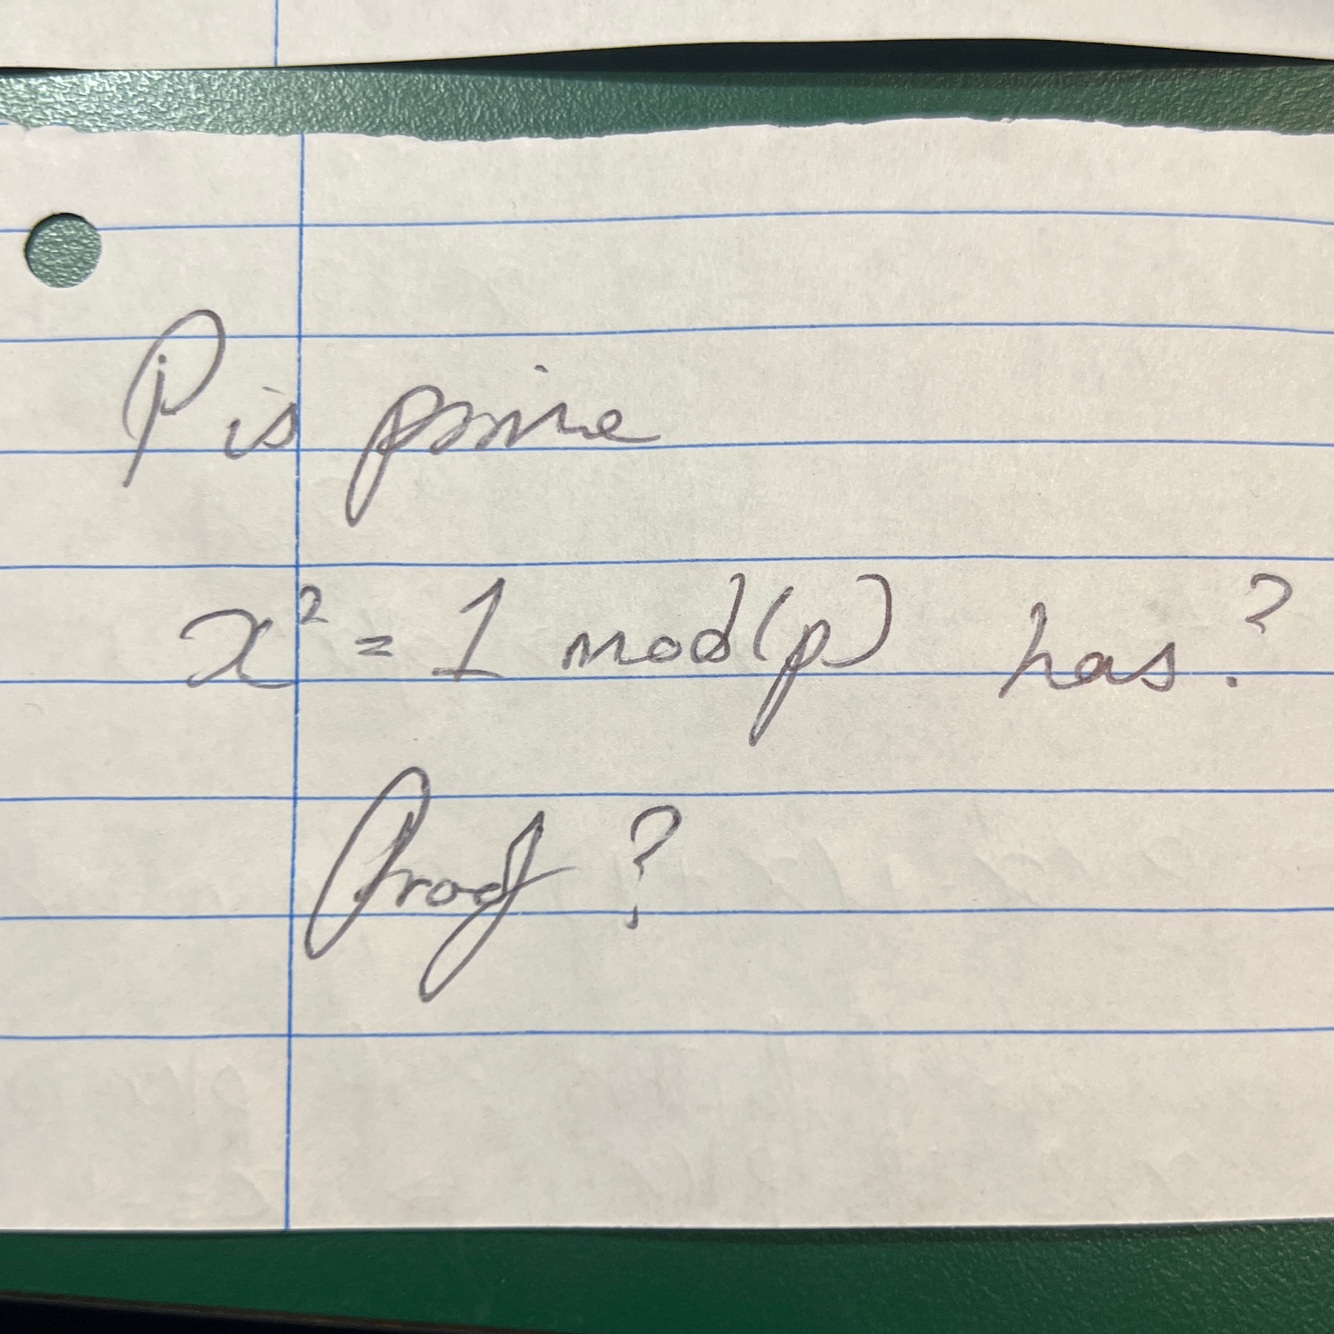 P is prime
x² = 1 mod(p) has?
Proof?